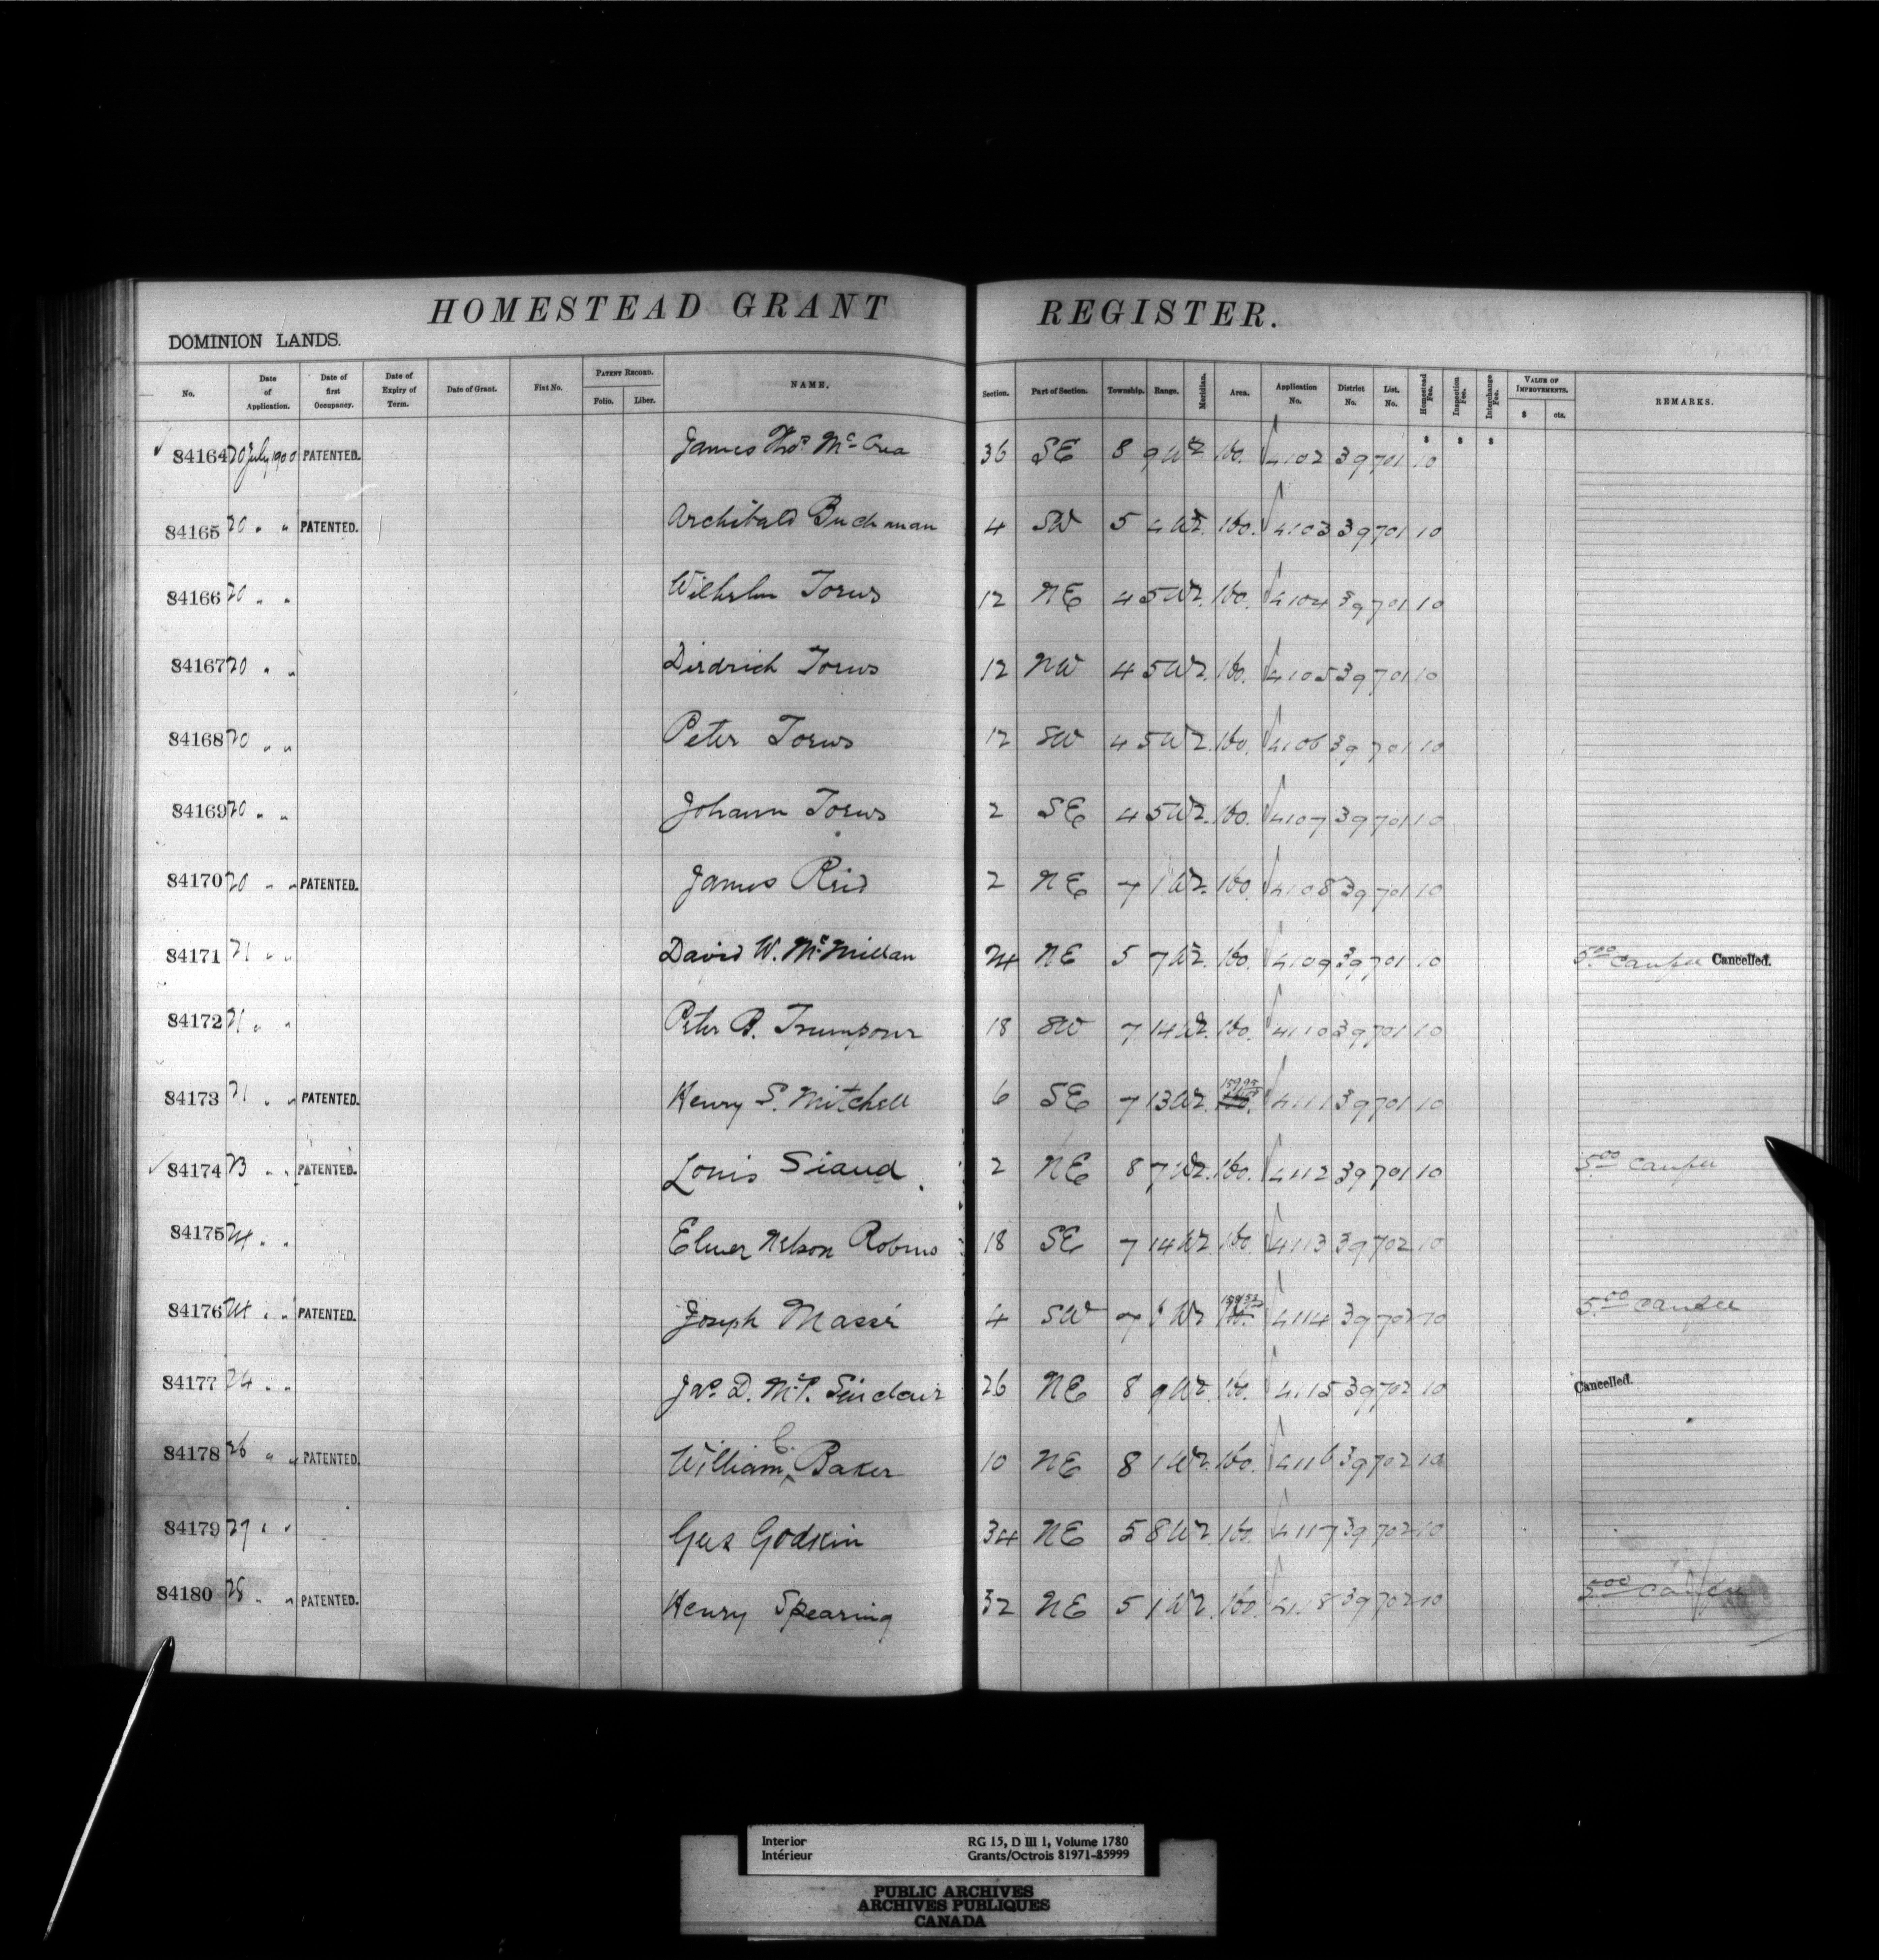 HOMESTEAD GRANT REGISTER.
DOMINION LANDS.
No. Date of Application. Date of first Occupancy. Date of Expiry of Term. Date of Grant. Fiat No. PATENT RECORD. Folio. Liber. NAME. Section. Part of Section. Township. Range. Meridian. Area. Application No. District No. List. No. Homestead Fee. Inspection Fee. Interchange Fee. VALUE OF IMPROVEMENTS. $ cts. REMARKS.
$ $ $
84164 20 July 1900 PATENTED. James Thos Mc Crea 36 SE 8 9 W2 160. 4102 39 701 10
84165 20 " " PATENTED. Archibald Buchanan 4 SW 5 4 W2. 160. 4103 39 701 10
84166 20 " " Wilhelm Toews 12 NE 4 5 W2. 160. 4104 39 701 10
84167 20 " " Diedrich Toews 12 NW 4 5 W2. 160. 4105 39 701 10
84168 20 " " Peter Toews 12 SW 4 5 W2. 160. 4106 39 701 10
84169 20 " " Johann Toews 2 SE 4 5 W2. 160. 4107 39 701 10
84170 20 " " PATENTED. James Reid 2 NE 7 1 W2. 160. 4108 39 701 10
84171 21 " " David W. McMillan 24 NE 5 7 W2. 160. 4109 39 701 10 5.00 Cancelled.
84172 21 " " Peter B. Trumpour 18 SW 7 14 W2. 160. 4110 39 701 10
84173 21 " " PATENTED. Henry S. Mitchell 6 SE 7 13 W2. 160. 4111 39 701 10
84174 23 " " PATENTED. Louis Siaud. 2 NE 8 7 W2. 160. 4112 39 701 10 5.00
84175 24 " " Elmer Nelson Robins 18 SE 7 14 W2. 160. 4113 39 702 10
84176 24 " " PATENTED. Joseph Massé 4 SW 7 6 W2 160. 4114 39 702 10 5.00
84177 24 " " Jno. D. McP. Sinclair 26 NE 8 9 W2. 160. 4115 39 702 10 Cancelled.
84178 26 " " PATENTED. William C. Baker 10 NE 8 1 W2. 160. 4116 39 702 10
84179 27 " " Gus Godkin 34 NE 5 8 W2. 160. 4117 39 702 10
84180 28 " " PATENTED. Henry Spearing 32 NE 5 1 W2. 160. 4118 39 702 10 5.00
Interior RG 15, D III 1, Volume 1780
Intérieur Grants/Octrois 81971-85999
PUBLIC ARCHIVES
ARCHIVES PUBLIQUES
CANADA